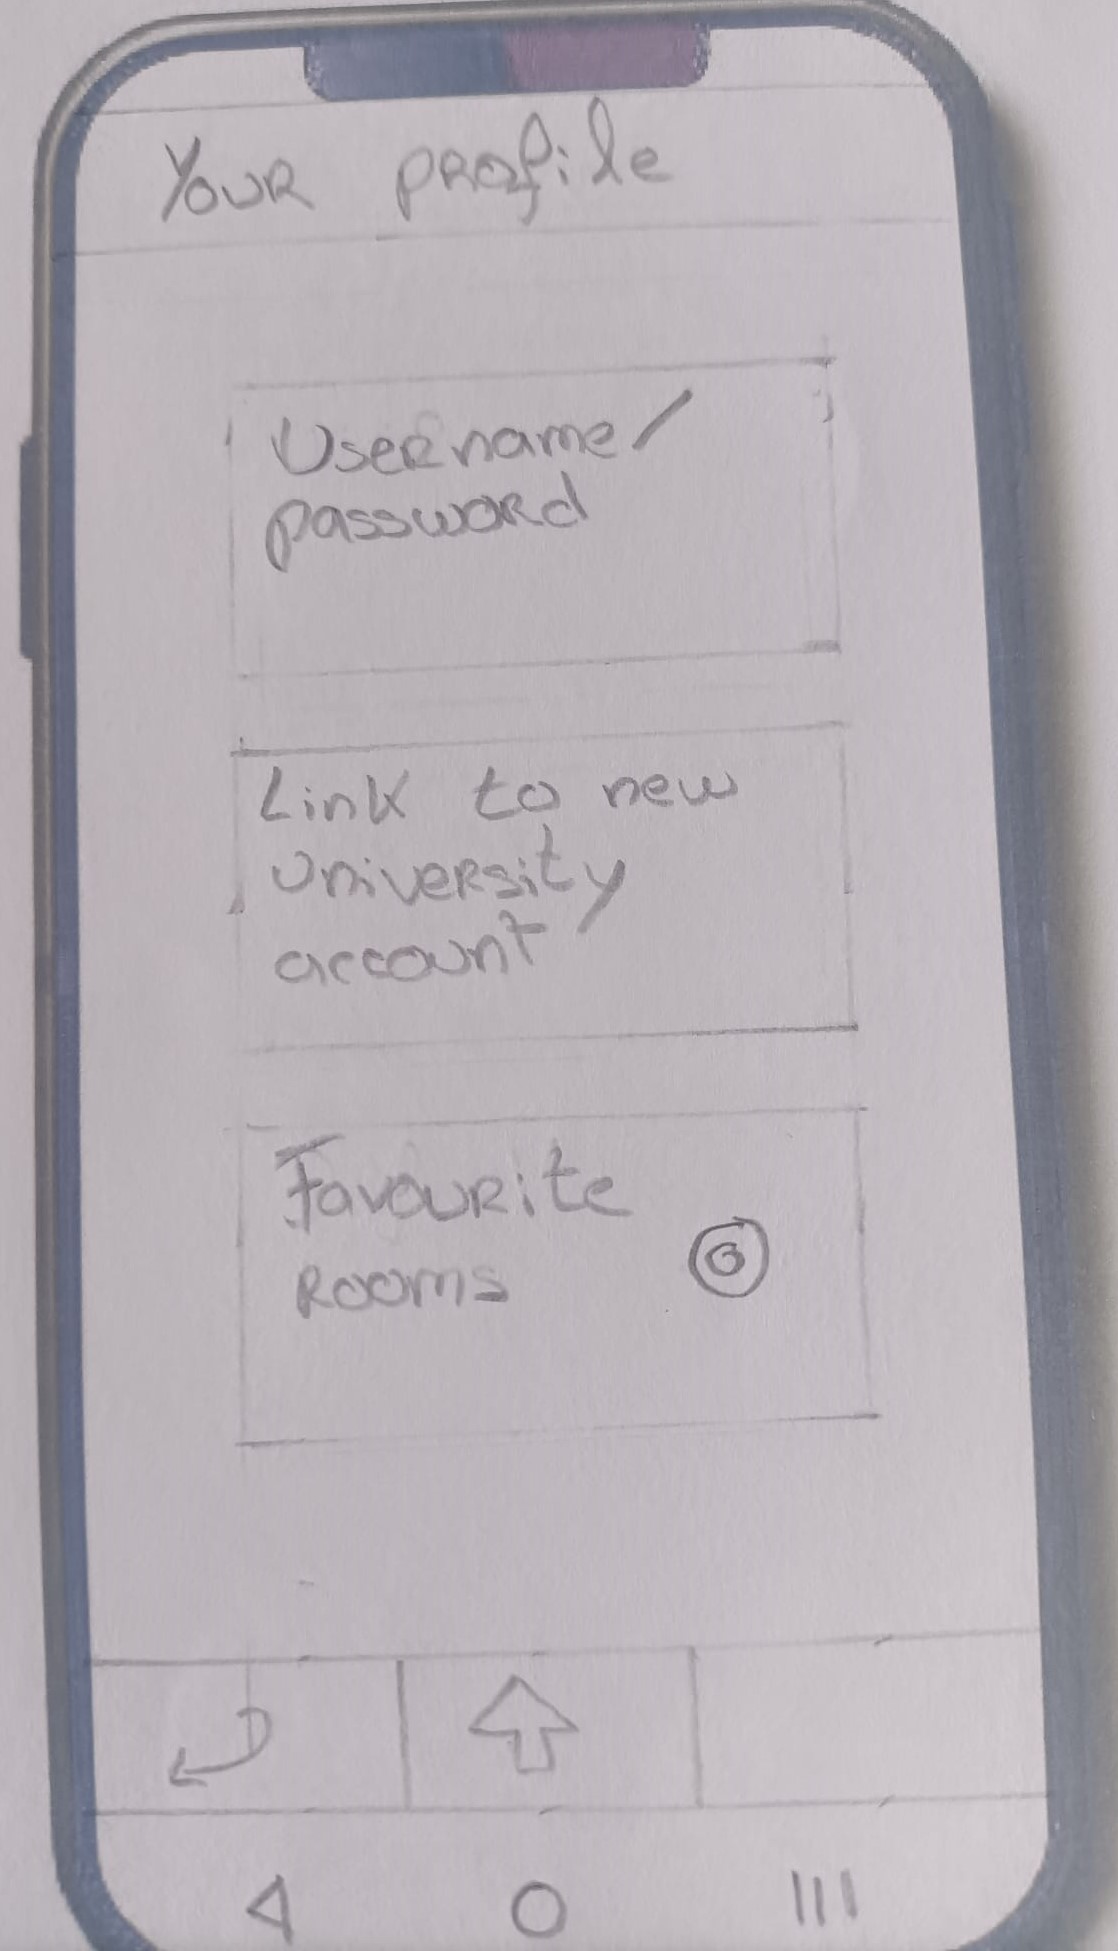 Your profile
Username/
password
Link to new
university
account
Favourite
rooms